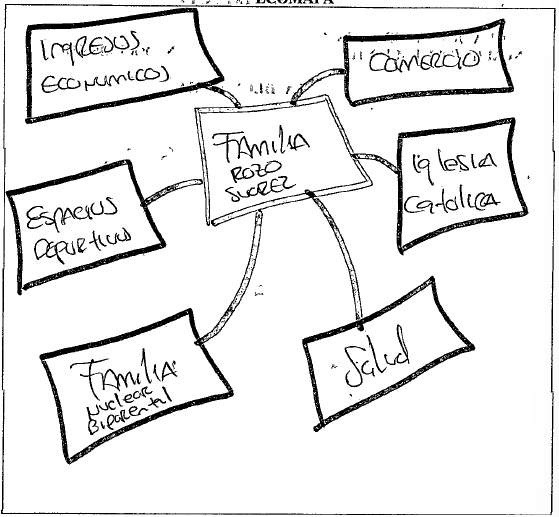 ECOMAPA
INGRESOS
ECONOMICOS
COMERCIO
FAMILIA
ROZO
SUAREZ
Iglesia
Catolica
ESPACIOS
DEPORTIVOS
FAMILIA
Nuclear
Biparental
Salud